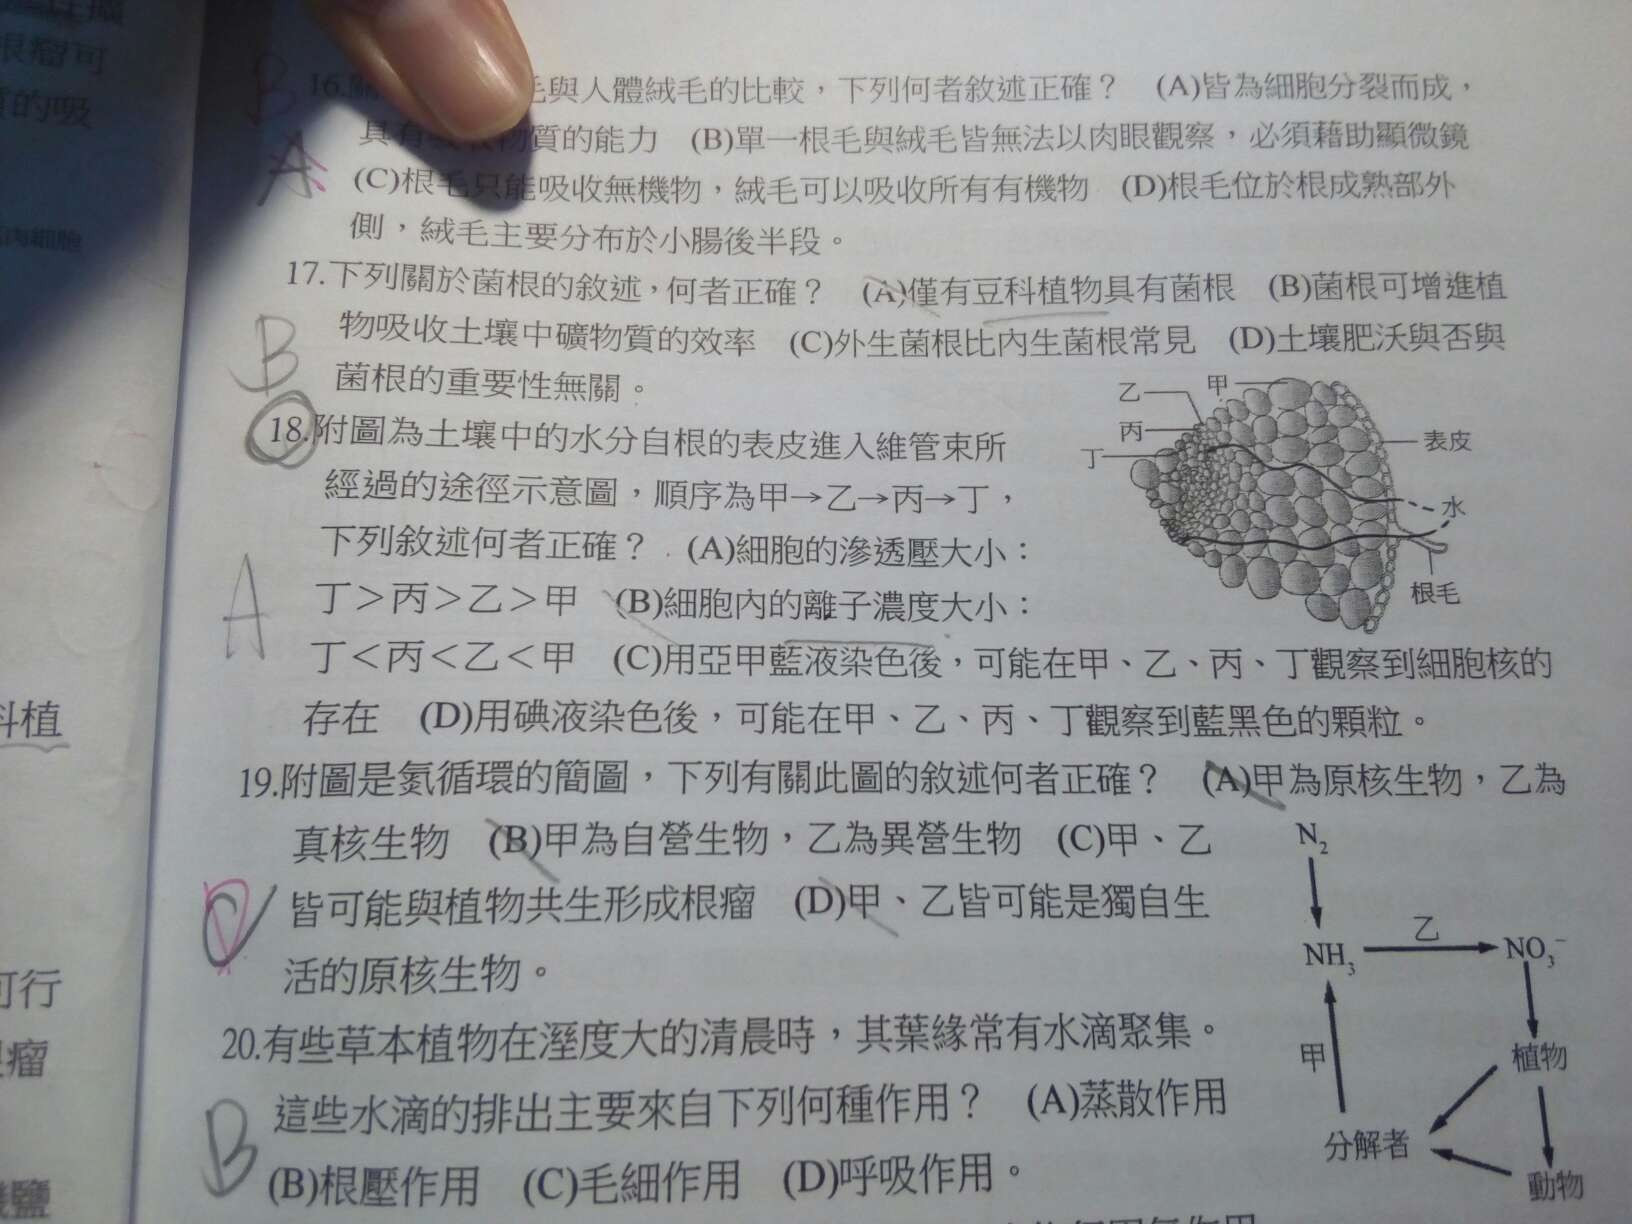 根瘤可
的吸
肉細胞
科植
可行
瘤
鹽
B
A
16.關 毛與人體絨毛的比較，下列何者敘述正確？ (A)皆為細胞分裂而成，
具有 物質的能力 (B)單一根毛與絨毛皆無法以肉眼觀察，必須藉助顯微鏡
(C)根毛只能吸收無機物，絨毛可以吸收所有有機物 (D)根毛位於根成熟部外
側，絨毛主要分布於小腸後半段。
B
17.下列關於菌根的敘述，何者正確？ (A)僅有豆科植物具有菌根 (B)菌根可增進植
物吸收土壤中礦物質的效率 (C)外生菌根比內生菌根常見 (D)土壤肥沃與否與
菌根的重要性無關。
A
18.附圖為土壤中的水分自根的表皮進入維管束所
經過的途徑示意圖，順序為甲→乙→丙→丁，
下列敘述何者正確？ (A)細胞的滲透壓大小：
丁＞丙＞乙＞甲 (B)細胞內的離子濃度大小：
丁＜丙＜乙＜甲 (C)用亞甲藍液染色後，可能在甲、乙、丙、丁觀察到細胞核的
存在 (D)用碘液染色後，可能在甲、乙、丙、丁觀察到藍黑色的顆粒。
乙
甲
丙
丁
表皮
水
根毛
19.附圖是氮循環的簡圖，下列有關此圖的敘述何者正確？ (A)甲為原核生物，乙為
真核生物 (B)甲為自營生物，乙為異營生物 (C)甲、乙
皆可能與植物共生形成根瘤 (D)甲、乙皆可能是獨自生
活的原核生物。
D
N2
NH3
乙
NO3−
甲
植物
分解者
動物
B
20.有些草本植物在溼度大的清晨時，其葉緣常有水滴聚集。
這些水滴的排出主要來自下列何種作用？ (A)蒸散作用
(B)根壓作用 (C)毛細作用 (D)呼吸作用。